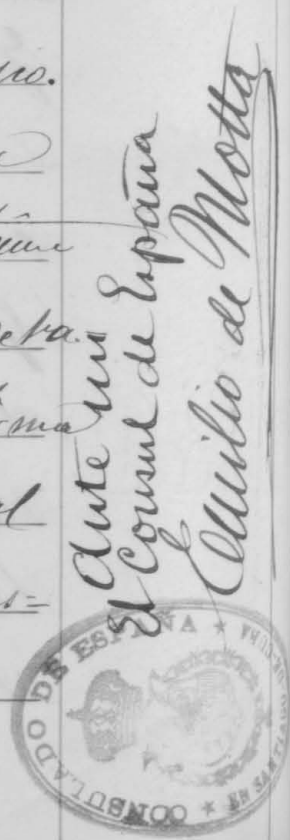 no.
Ante mi
El Consul de España
Emilio de Motta
CONSULADO DE ESPAÑA
EN SANTIAGO DE CUBA